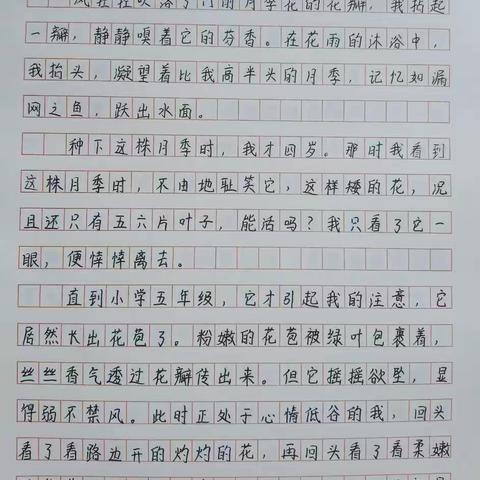 风狂狂吹落了门前月季花的花瓣，我拾起
一瓣，静静嗅着它的芬香。在花雨的沐浴中，
我抬头，凝望着比我高半头的月季，记忆如漏
网之鱼，跃出水面。
种下这株月季时，我才四岁。那时我看到
这株月季时，不由地耻笑它，这样矮的花，况
且还只有五六片叶子，能活吗？我只看了它一
眼，便悻悻离去。
直到小学五年级，它才引起我的注意，它
居然长出花苞了。粉嫩的花苞被绿叶包裹着，
丝丝香气透过花瓣传出来。但它摇摇欲坠，显
得弱不禁风。此时正处于心情低谷的我，回头
看了看路边开的灼灼的花，再回头看了看柔嫩